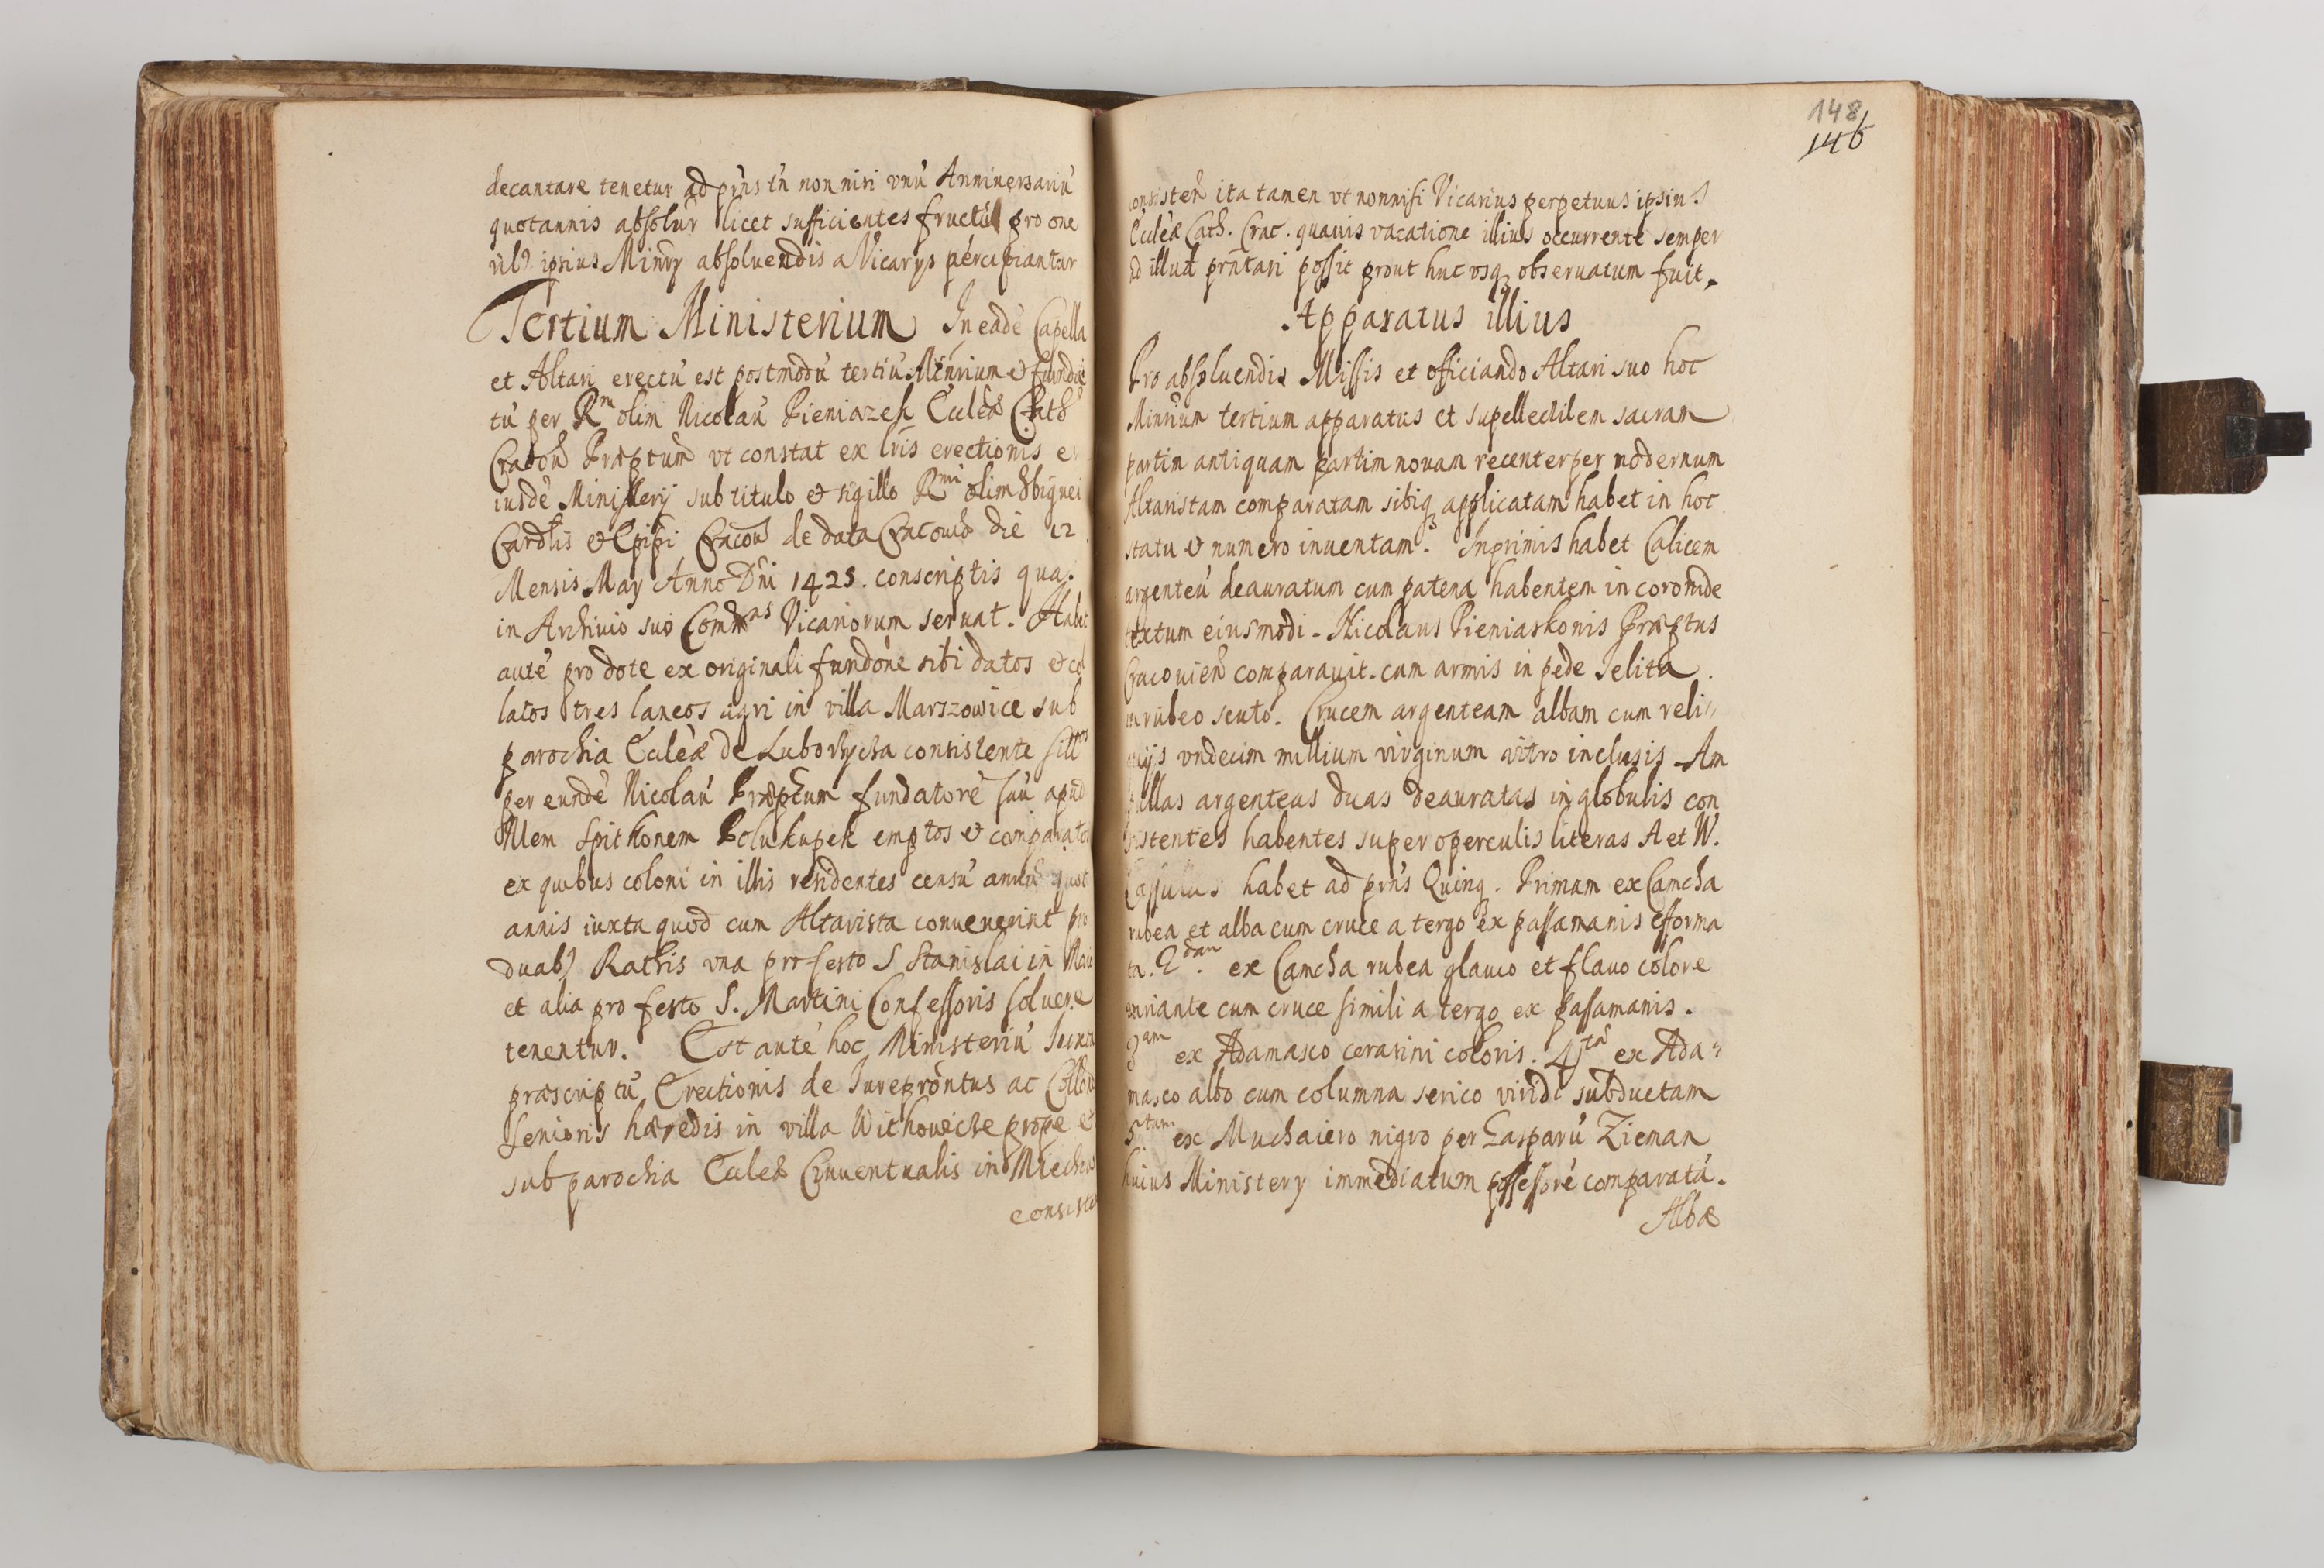 decantare tenetur ad prńs tń non nisi vnú Anniuersariú
quotannis absoluŕ licet sufficientes fructus pro one
ipsius Minŕy absoluendis a Vicarys percipiantur
Tertium Ministerium In eadé Capella
et Altari erectú est postmodú tertiú Minrium & funda
tú per Rm olim Nicolaú Pieniazek Ecclæ Cath
Cracoú Præptum vt constat ex lris erectionis e
iusdé Ministerij sub titulo & sigillo Rmi olim Sbignei
Cardlis & Epipi Cracoú de data Cracouiæ die 12
Mensis May Anno Dńi 1425. conscriptis qua.
in Archiuio suo Commtas Vicariorum seruat. Habet
auté pro dote ex originali fundóne sibi datos & col
latos tres laneos agri in villa Marszowice sub
parochia Ecclæ de Luborzycza consistente sittos
per eundé Nicolaú Præptum fundatoré suú apud
Nlem Spitkonem Polukupek emptos & comparatos
ex quibus coloni in illis residentes censú annú quot
annis iuxta quod cum Altarista conuenerint pro
duab) Rathis vna pro festo S Stanislai in Maio
et alia pro festo S. Martini Confessoris soluere
tenentur. Est auté hoc Ministeriú Iuxta
præscriptú Erectionis de Iurepróntus ac Collónis
senioris hæredis in villa Withowicze prope &
sub parochia Ecclæ Conuentualis in Miechow
consisten
148
146
consisteń ita tamen vt nonnisi Vicarius perpetuus ipsius
Ecclæ Cath. Crac. quauis vacatione illius occurrente semper
ad illud prńtari possit prout huc vsq obseruatum fuit.
Apparatus illius
Pro absoluendis Missis et officiando Altari suo hoc
Minrium tertium apparatus et supellectilem sacram
partim antiquam partim nouam recenter per modernum
Altaristam comparatam sibiq applicatam habet in hoc
statu & numero inuentam. Inprimis habet Calicem
argenteú deauratum cum patena habentem in coronide
textum eiusmodi. Nicolaus Pieniaskonis Præptus
Cracouień comparauit. cum armis in pede Jelita
in rubeo scuto. Crucem argenteam albam cum reli
quijs vndecim millium virginum vitro inclusis Am
pullas argenteas duas deauratas in globulis con
sistentes habentes super operculis literas A et W.
Cassulas habet ad prńs Quinq. Primam ex Camcha
rubea et alba cum cruce a tergo ex passamanis efforma
ta. 2dam ex Camcha rubea glauco et flauo colore
variante cum cruce simili a tergo ex passamanis.
3am ex Adamasco cerasini coloris. 4tá ex Ada
masco albo cum columna serico viridi subductam
5tam ex Muchaiero nigro per Gasparú Zieman
huius Ministery immediatum possessoré comparatá.
Albæ